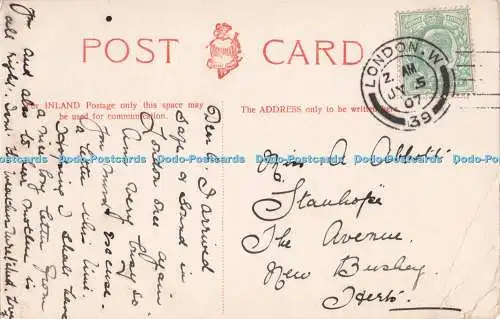 POST CARD
For INLAND Postage only this space may
be used for communication.
The ADDRESS only to be written here.
LONDON. W
AM
JY 5
07
39
Dear A. I arrived
safe & sound in
London once again
Am very busy so
you must excuse
a letter this time.
I shall have
a nice long letter from
you and also to her mother is
all right. Isn't the weather wretched. Love
Miss A Abbott
Stanhope
The Avenue
New Bushey
Herts.
Dodo-Postcards Dodo-Postcards Dodo-Postcards Dodo-Postcards Dodo-Postcards